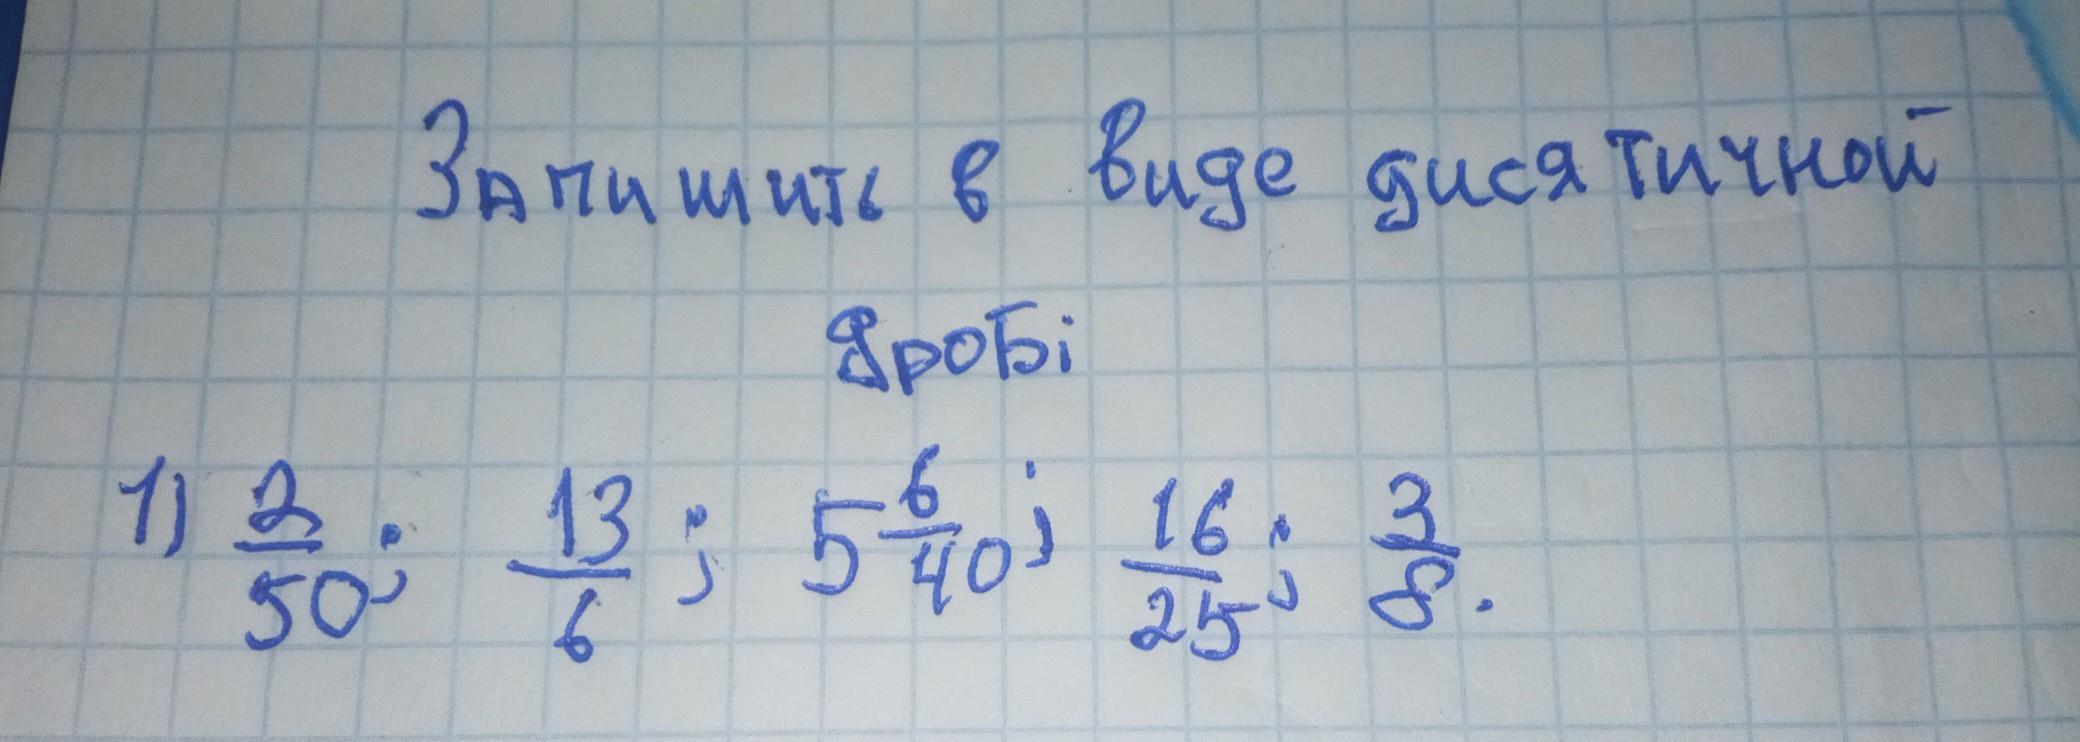 Запишить в виде дисятичной
дробі
1) 2/50; 13/6; 5 6/40; 16/25; 3/8.